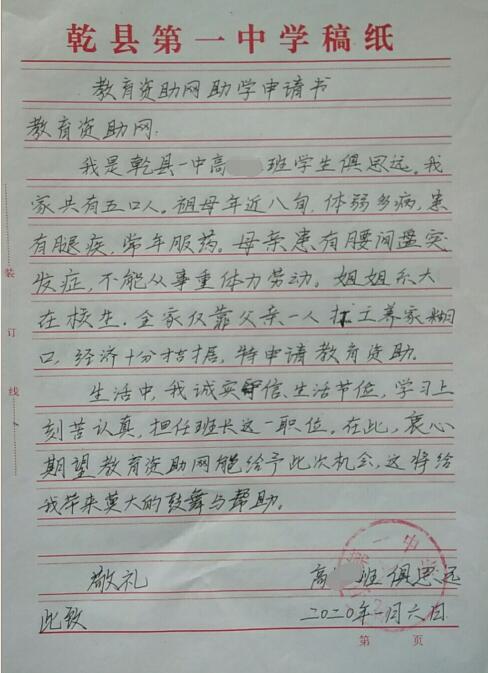 乾县第一中学稿纸
教育资助网助学申请书
教育资助网:
我是乾县一中高 班学生俱思远。我
家共有五口人。祖母年近八旬,体弱多病,患
有腿疾,常年服药。母亲患有腰间盘突
发症,不能从事重体力劳动。姐姐系大
在校生.全家仅靠父亲一人打工养家糊
口,经济十分拮据,特申请教育资助。
生活中,我诚实守信、生活节俭,学习上
刻苦认真,担任班长这一职位。在此,衷心
期望教育资助网能给予此次机会,这将给
我带来莫大的鼓舞与帮助。
敬礼 高 班 俱思远
此致 二〇二〇年一月六日
第 页
装
订
线